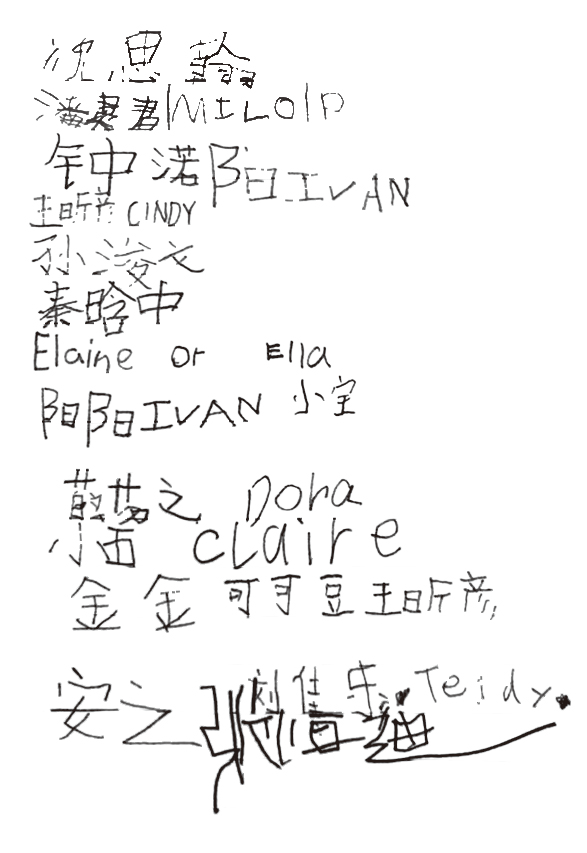 沈思
潘 君 MILO P
钟中渃 阳 IVAN
王昕彦 CINDY
孙浚文
秦晗中
Elaine or Ella
阳阳 IVAN 小宝
之 Dora
小西 CLaire
金金 可可豆 王昕彦
安之 刘佳乐 Teidy.